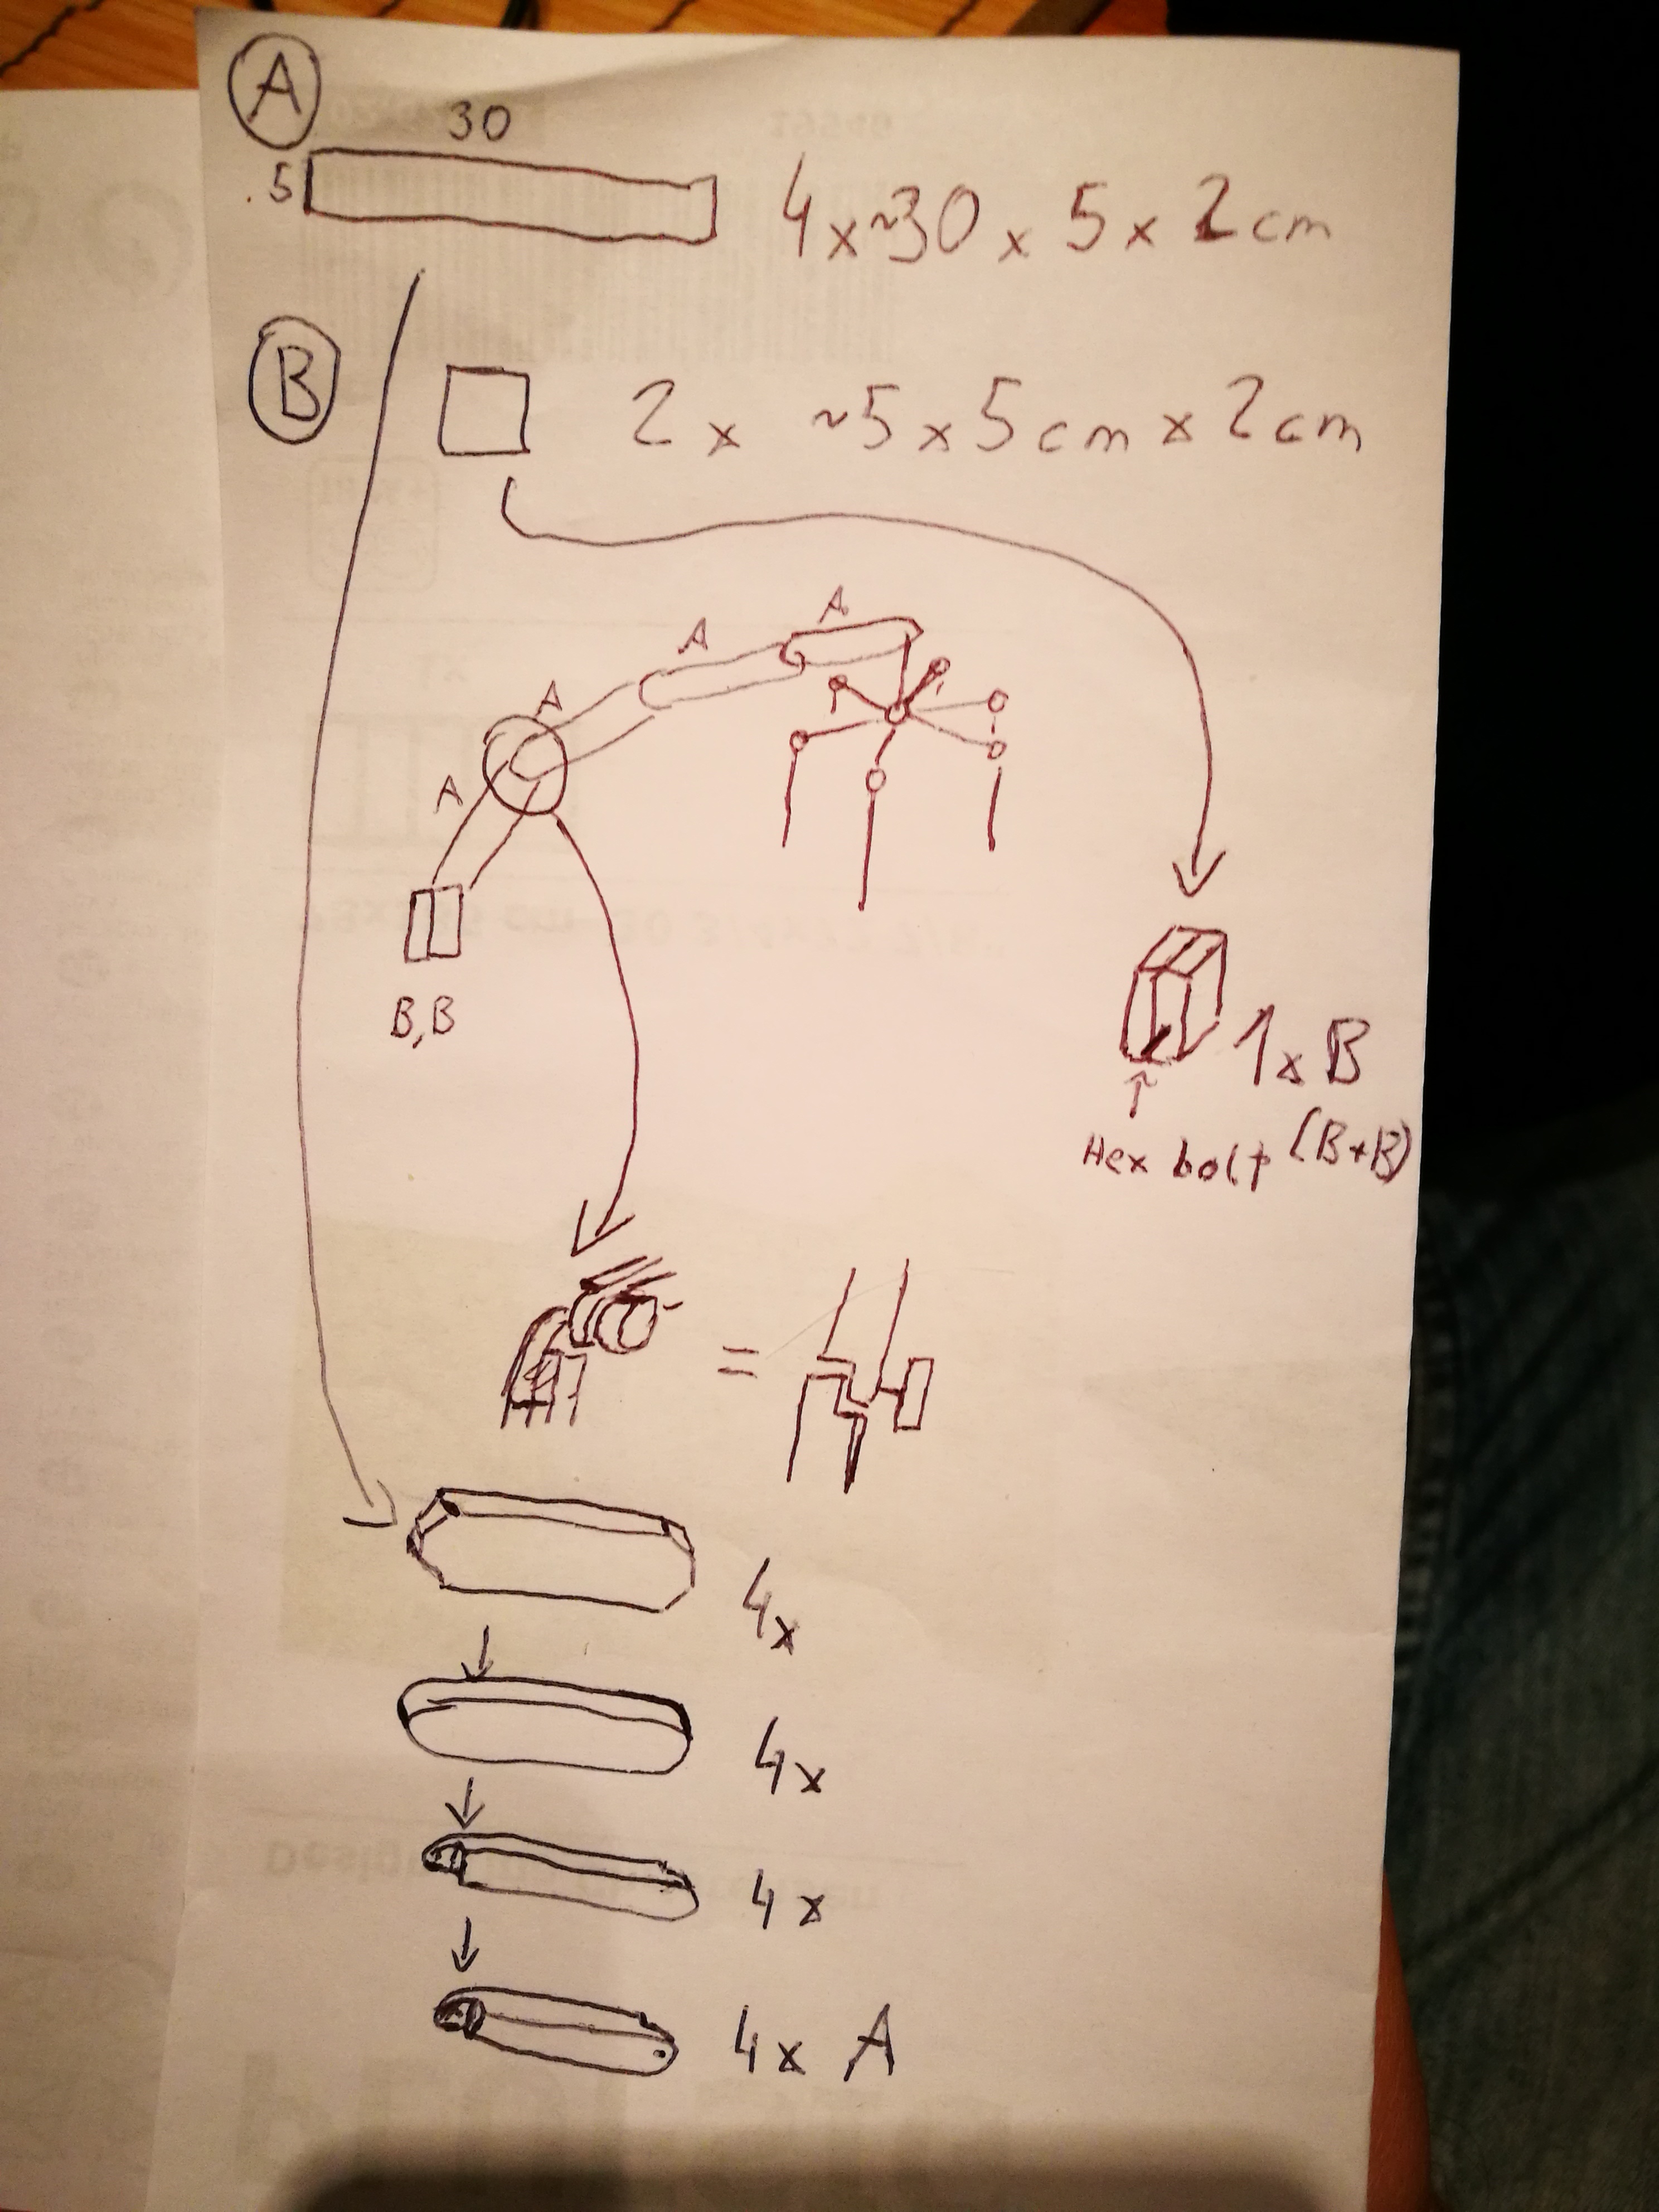 A
30
.5
4 x ~30 x 5 x 2 cm
B
2 x ~5 x 5 cm x 2 cm
A
A
A
A
B,B
1 x B
(B+B)
Hex bolt
=
4x
4x
4x
4x A